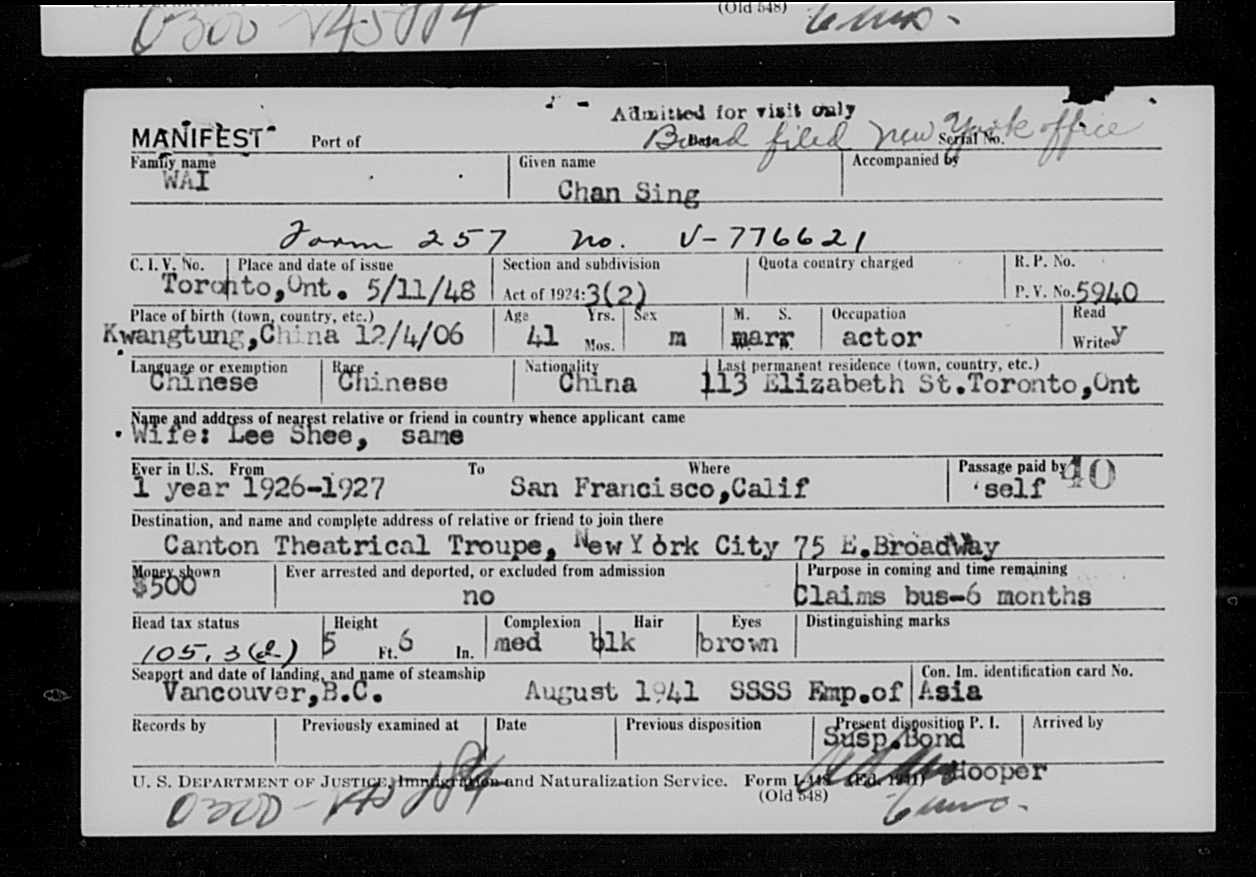 (Old 548)
Admitted for visit only
MANIFEST Port of Date Bond filed New York office Serial No.
Family name Given name Accompanied by
WAI Chan Sing
Form 257 no. V-776621
C. I. V. No. Place and date of issue Section and subdivision Quota country charged R. P. No.
Toronto,Ont. 5/11/48 Act of 1924: 3(2) P. V. No. 5940
Place of birth (town, country, etc.) Age Yrs. Sex M. S. Occupation Read
Kwangtung,China 12/4/06 41 Mos. m marr actor Write y
Language or exemption Race Nationality Last permanent residence (town, country, etc.)
Chinese Chinese China 113 Elizabeth St.Toronto,Ont
Name and address of nearest relative or friend in country whence applicant came
Wife: Lee Shee, same
Ever in U.S. From To Where Passage paid by 40
1 year 1926-1927 San Francisco,Calif self
Destination, and name and complete address of relative or friend to join there
Canton Theatrical Troupe, New York City 75 E.Broadway
Money shown Ever arrested and deported, or excluded from admission Purpose in coming and time remaining
$500 no Claims bus-6 months
Head tax status Height Complexion Hair Eyes Distinguishing marks
105.3(d) 5 Ft. 6 In. med blk brown
Seaport and date of landing, and name of steamship Con. Im. identification card No.
Vancouver,B.C. August 1941 SSSS Emp.of Asia
Records by Previously examined at Date Previous disposition Present disposition P. I. Arrived by
Susp.Bond
U. S. DEPARTMENT OF JUSTICE, Immigration and Naturalization Service. Form I-448 (Ed. 1941) Hooper
(Old 548)